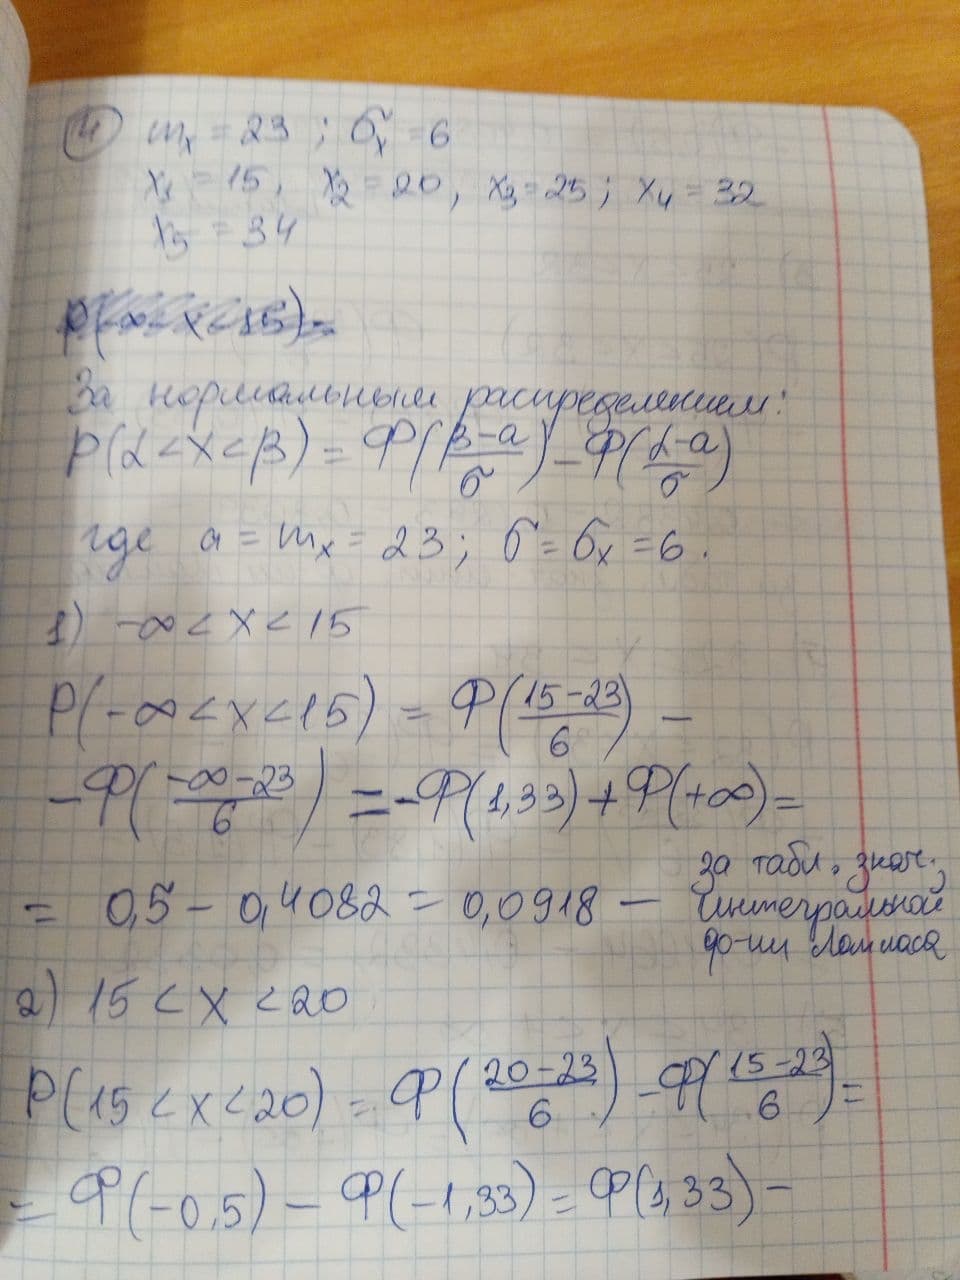 4) mₓ = 23 ; σₓ = 6
x₁ = 15, x₂ = 20, x₃ = 25; x₄ = 32
x₅ = 34
P(-∞ < x < 15) =
За нормальным распределением:
P(α < x < β) = Ф((β-a)/σ) - Ф((α-a)/σ)
где a = mₓ = 23; σ = σₓ = 6.
1) -∞ < x < 15
P(-∞ < x < 15) = Ф((15-23)/6) -
- Ф((-∞-23)/6) = -Ф(1,33) + Ф(+∞) =
= 0,5 - 0,4082 = 0,0918 — за табл. знач. интегральной ф-ии Лапласа
2) 15 < x < 20
P(15 < x < 20) = Ф((20-23)/6) - Ф((15-23)/6) =
= Ф(-0,5) - Ф(-1,33) = Ф(1,33) -